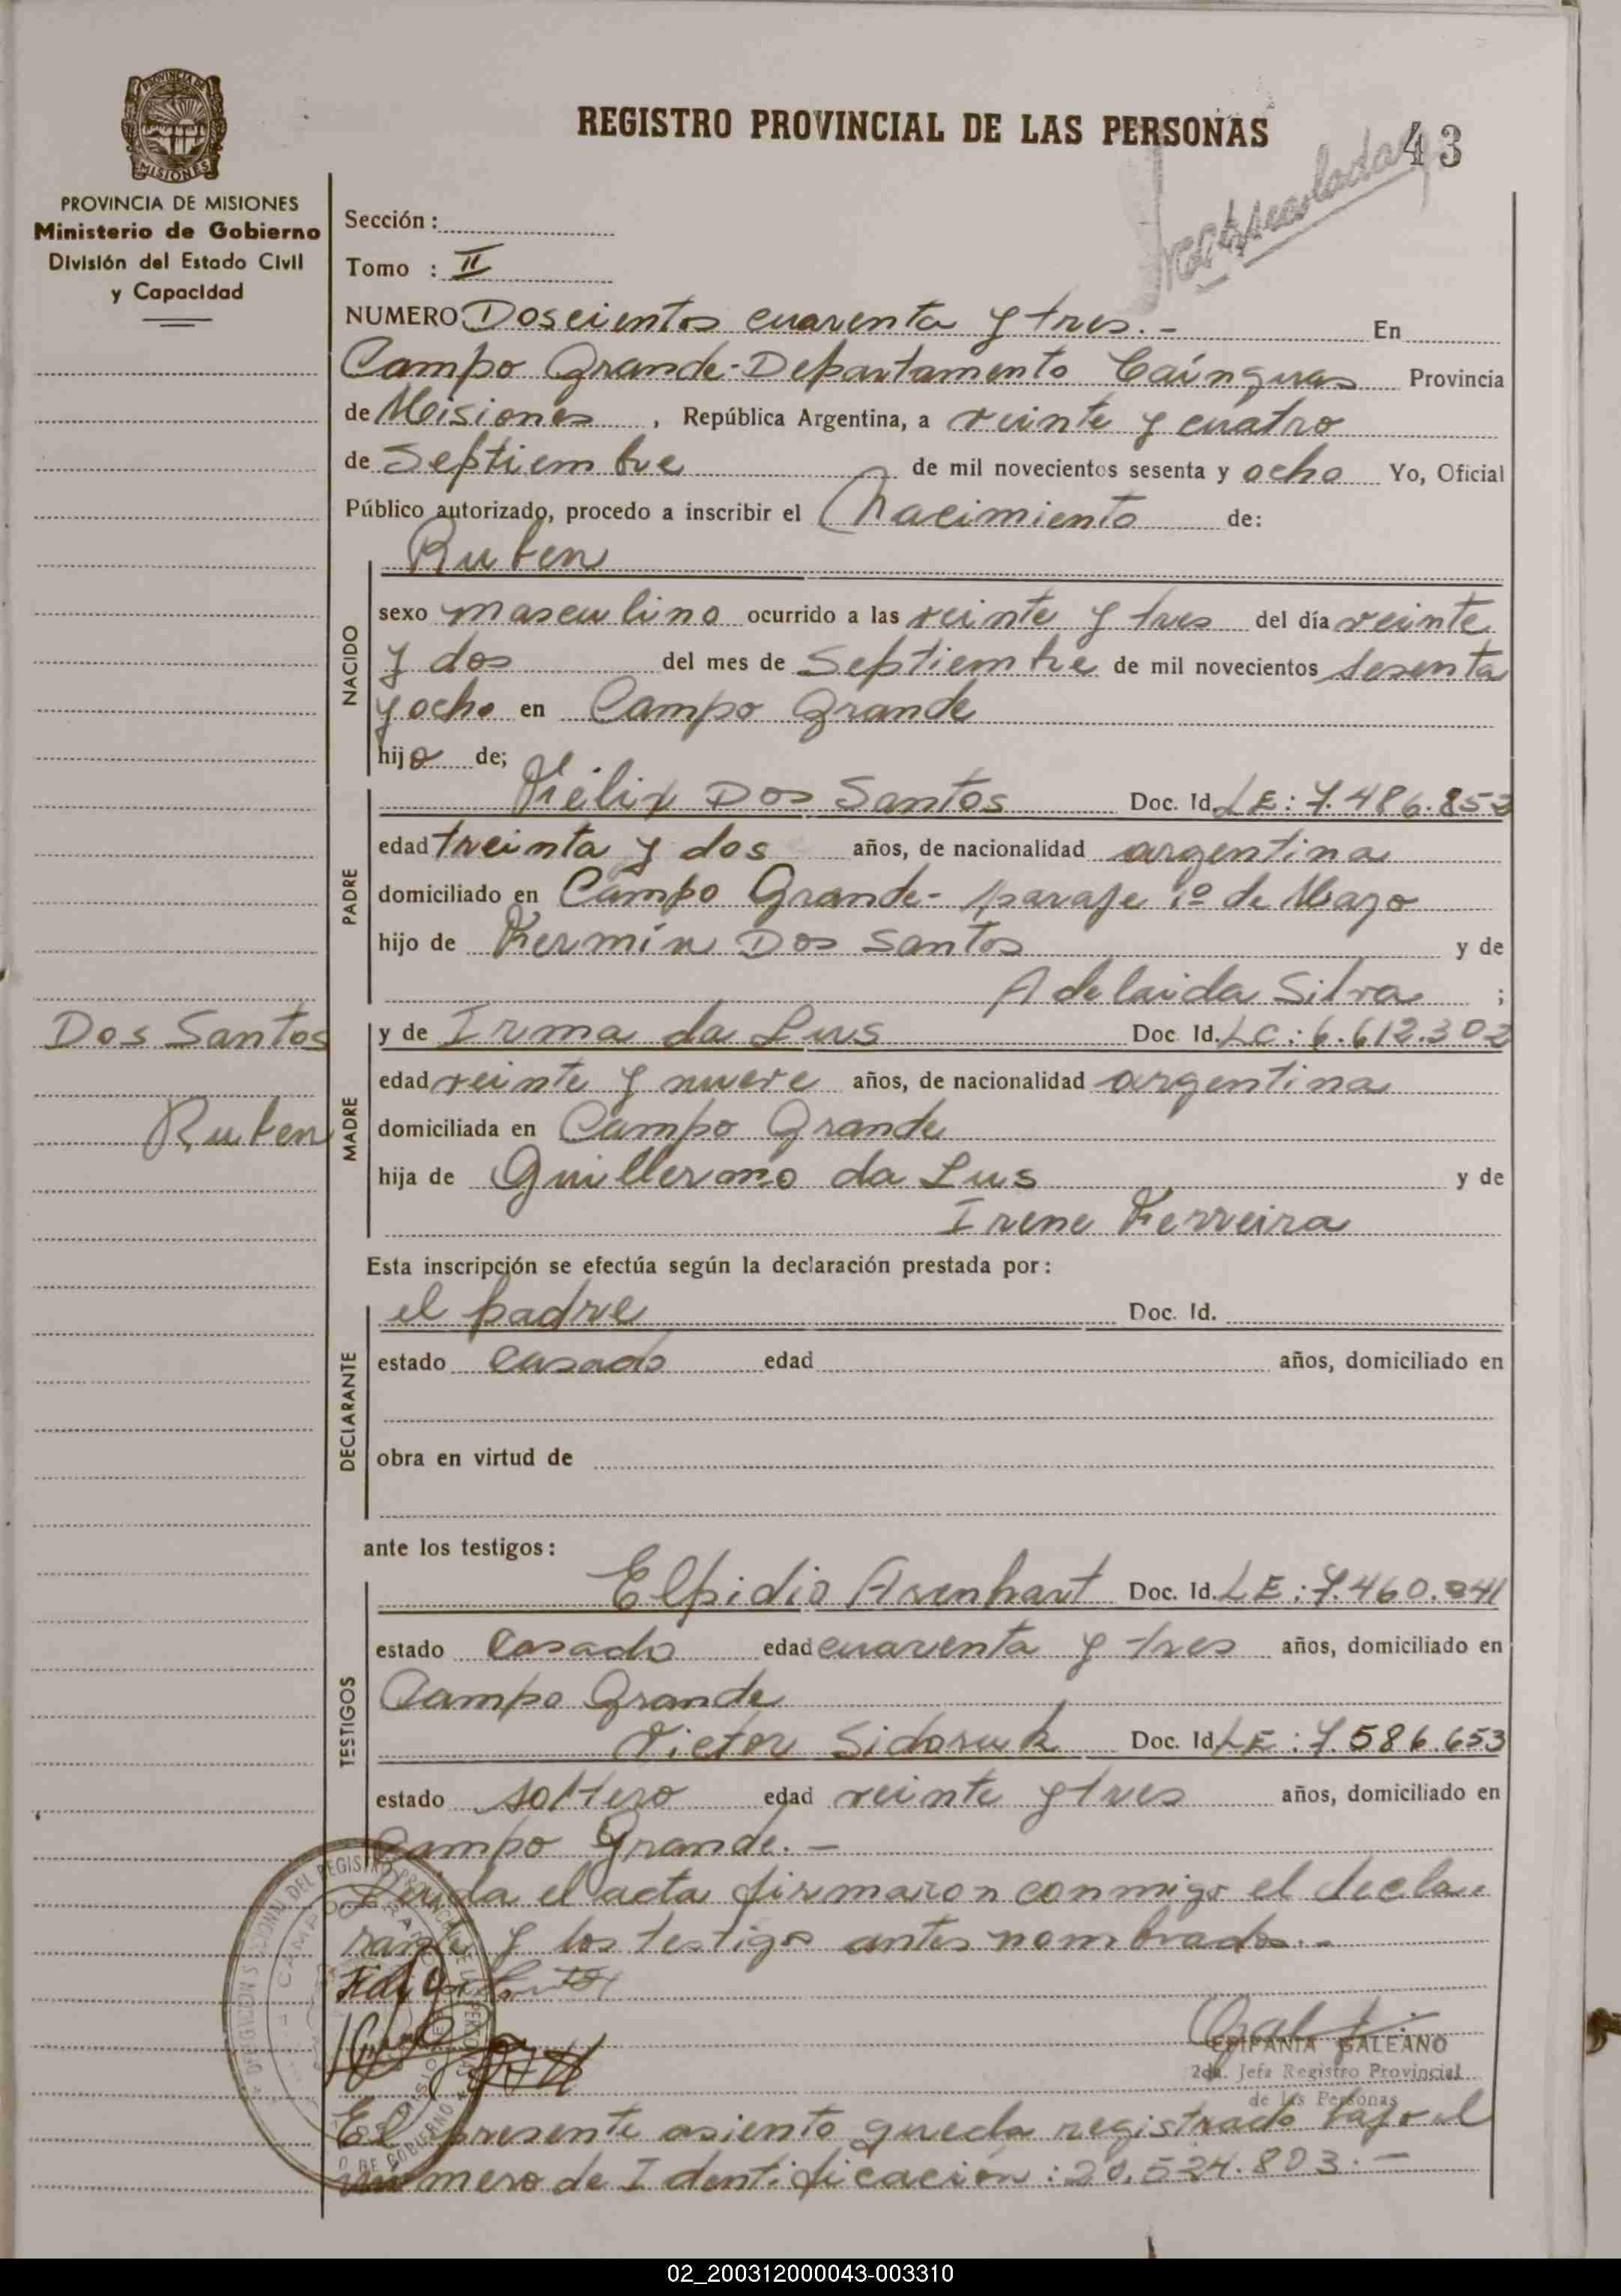 REGISTRO PROVINCIAL DE LAS PERSONAS
43
PROVINCIA DE MISIONES
Ministerio de Gobierno
División del Estado Civil
y Capacidad
Sección :
Tomo : II
NUMERO: Doscientos cuarenta y tres.- En
Campo Grande-Departamento Caínguas Provincia
de Misiones , República Argentina, a veinte y cuatro
de Septiembre de mil novecientos sesenta y ocho Yo, Oficial
Público autorizado, procedo a inscribir el Nacimiento de:
Ruben
NACIDO
sexo masculino ocurrido a las veinte y tres del día veinte
y dos del mes de Septiembre de mil novecientos sesenta
y ocho en Campo Grande
hijo de;
PADRE
Félix Dos Santos Doc. Id. LE: 7.486.853
edad treinta y dos años, de nacionalidad argentina
domiciliado en Campo Grande- paraje 1º de Mayo
hijo de Fermín Dos Santos y de
Adelaida Silva ;
Dos Santos
Ruben
MADRE
y de Irma da Lus Doc. Id. LC: 6.612.302
edad veinte y nueve años, de nacionalidad argentina
domiciliada en Campo Grande
hija de Guillermo da Lus y de
Irene Ferreira
Esta inscripción se efectúa según la declaración prestada por:
DECLARANTE
el padre Doc. Id.
estado casado edad años, domiciliado en
obra en virtud de
ante los testigos:
TESTIGOS
Elpidio Arenhart Doc. Id. LE: 7.460.041
estado casado edad cuarenta y tres años, domiciliado en
Campo Grande
Victor Sidoruk Doc. Id. LE: 7.586.653
estado soltero edad veinte y tres años, domiciliado en
Campo Grande.-
Leída el acta firmaron conmigo el decla-
rante y los testigos antes nombrados.-
EPIFANIA GALEANO
2da. Jefa Registro Provincial
de las Personas
El presente asiento queda registrado bajo el
número de Identificación: 20.524.803.-
02_200312000043-003310